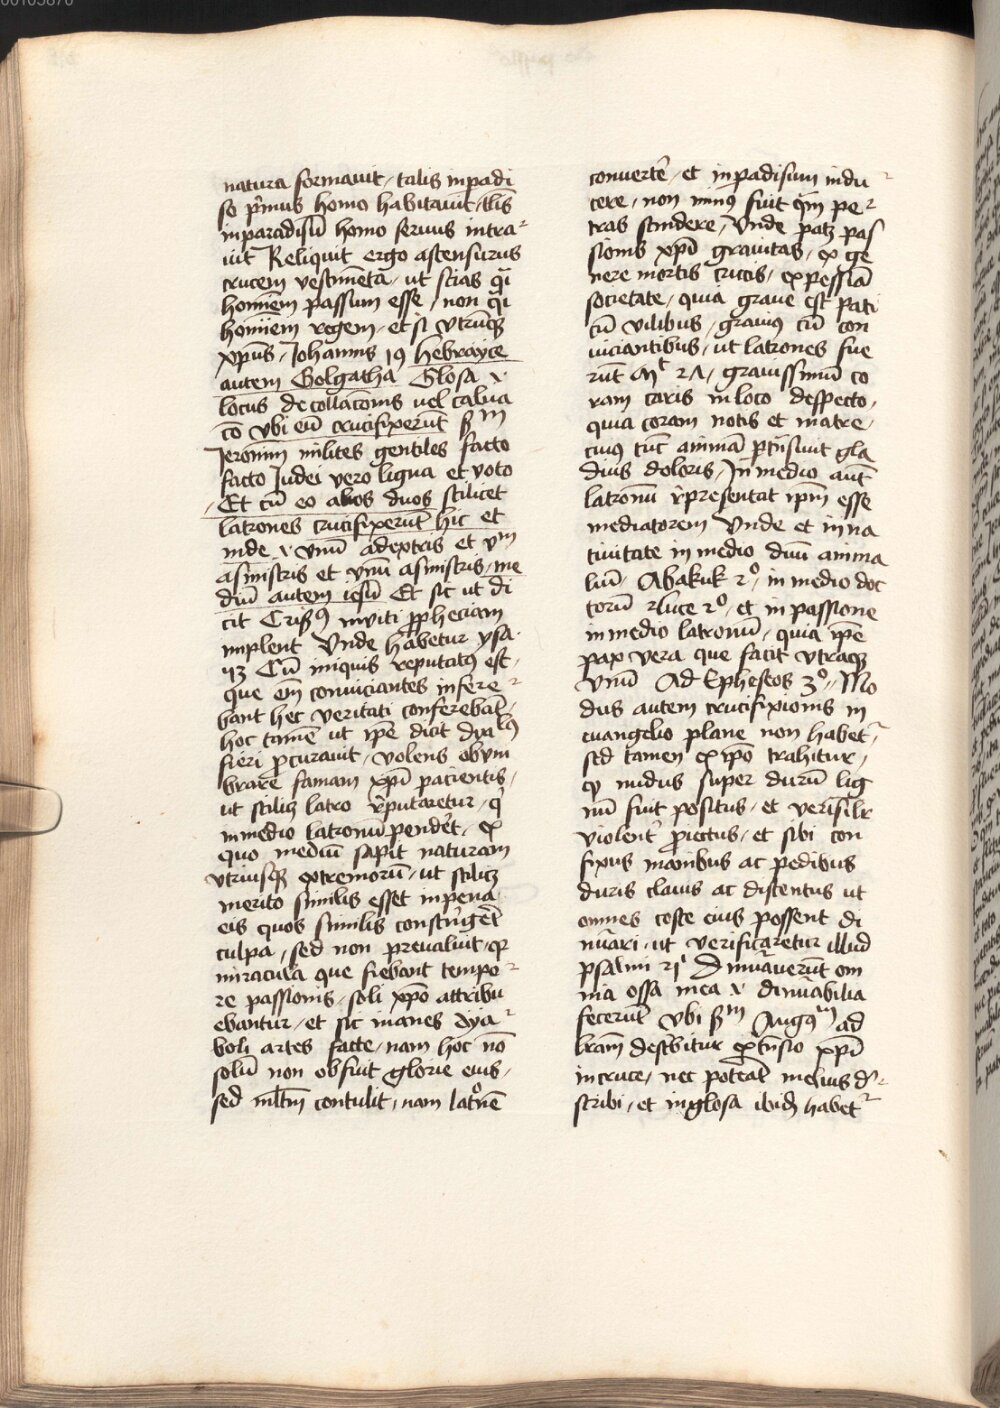 00103870
natura formauit, talis in padi
so pͥmus homo habitauit, tl̄is
in paradisū homo seruus intra
uit Reliquit ergo ascensurus
crucem vestimēta, ut scias qͣi
homīem passum esse, non qͣi
homīem regem, et si vtrūqꝫ
xp̄us, Johannis 19 hebrayce
autem Golgatha Glosa .i.
locus decollacōnis uel calua
co vbi eū crucifixerūt ẜm
Jeronim milites gentiles facto
facto Judei vero ligua et voto
Et cū eo alios duos scilicet
latrones crucifixerūt hic et
inde .i. vnū a dextris et vm̄
a sinistris et vnū a sinistris, me
diū autem iesū Et sic ut di
cit Crisꝰ inuiti ꝓpheciam
implent Vnde habetur ysa.
53 Cū iniquis reputatꝰ est,
que em̄ conuiciantes infere
bant hec veritati conferebāt,
hoc tamē ut ip̄e dicit dyalꝰ
fieri ꝓcurauit, volens obum
brare famam xp̄i pacientis,
ut scilicꝫ latro r̄putaretur, qͥ
in medio latronū pendēt, ex
quo mediū sapit naturam
vtriusqꝫ extremorū, ut scilicꝫ
merito similis esset in pena
eis quos similis constrīgēt
culpa, sed non preualuit, qꝛ
miracula que fiebant tempo
re passionis, soli xp̄o attribu
ebantur, et sic inanes dya
boli artes facte, nam hoc nō
solū non obfuit glorie eius,
sed ml̄tm̄ contulit, nam latͦnē
conuertē, et in padisum indu
cere, non minꝰ fuit qͣm pe
tras scindere, Vnde patꝫ pas
sionis xp̄i grauitas, ex ge
nere mortis crucis, ex pessīa
societate, quia graue est pati
cū vilibus, grauiꝰ cū con
uiciantibus, ut latrones fue
rūt Mͭ 27, grauissimū co
ram caris in loco despecto,
quia coram notis et matre,
cuiꝰ tūc animā ꝑtrāsiuit gla
dius doloris, In medio aūt
latronū r̄presentat ip̄m esse
mediatorem Vnde et in na
tiuitate in medio duū anima
liū, Abakuk 2ͦ, in medio doc
torū luce 2ͦ, et in passione
in medio latronū, quia ip̄e
pax vera que facit vtraqꝫ
vnū Ad Epheseos 3ͦ, Mo
dus autem crucifixionis in
euangelio plane non habet᷑,
sed tamen ex ip̄o trahitur,
qꝫ nudus super durū lig
nū fuit positus, et verisilr̄
violent᷑ ꝓiectus, et sibi con
fixus manibus ac pedibus
duris clauis ac distentus ut
omnes coste eius possent di
nūari, ut verificaretur illud
psalmi 21 Dinūauerūt om
nia ossa mea .i. dinūabilia
fecerūt vbi ẜm Augꝰᵐ ad
lr̄am describitur extēsio xp̄i
in cruce, nec poterāt melius de
scribi, et in glosa ibidē habet᷑